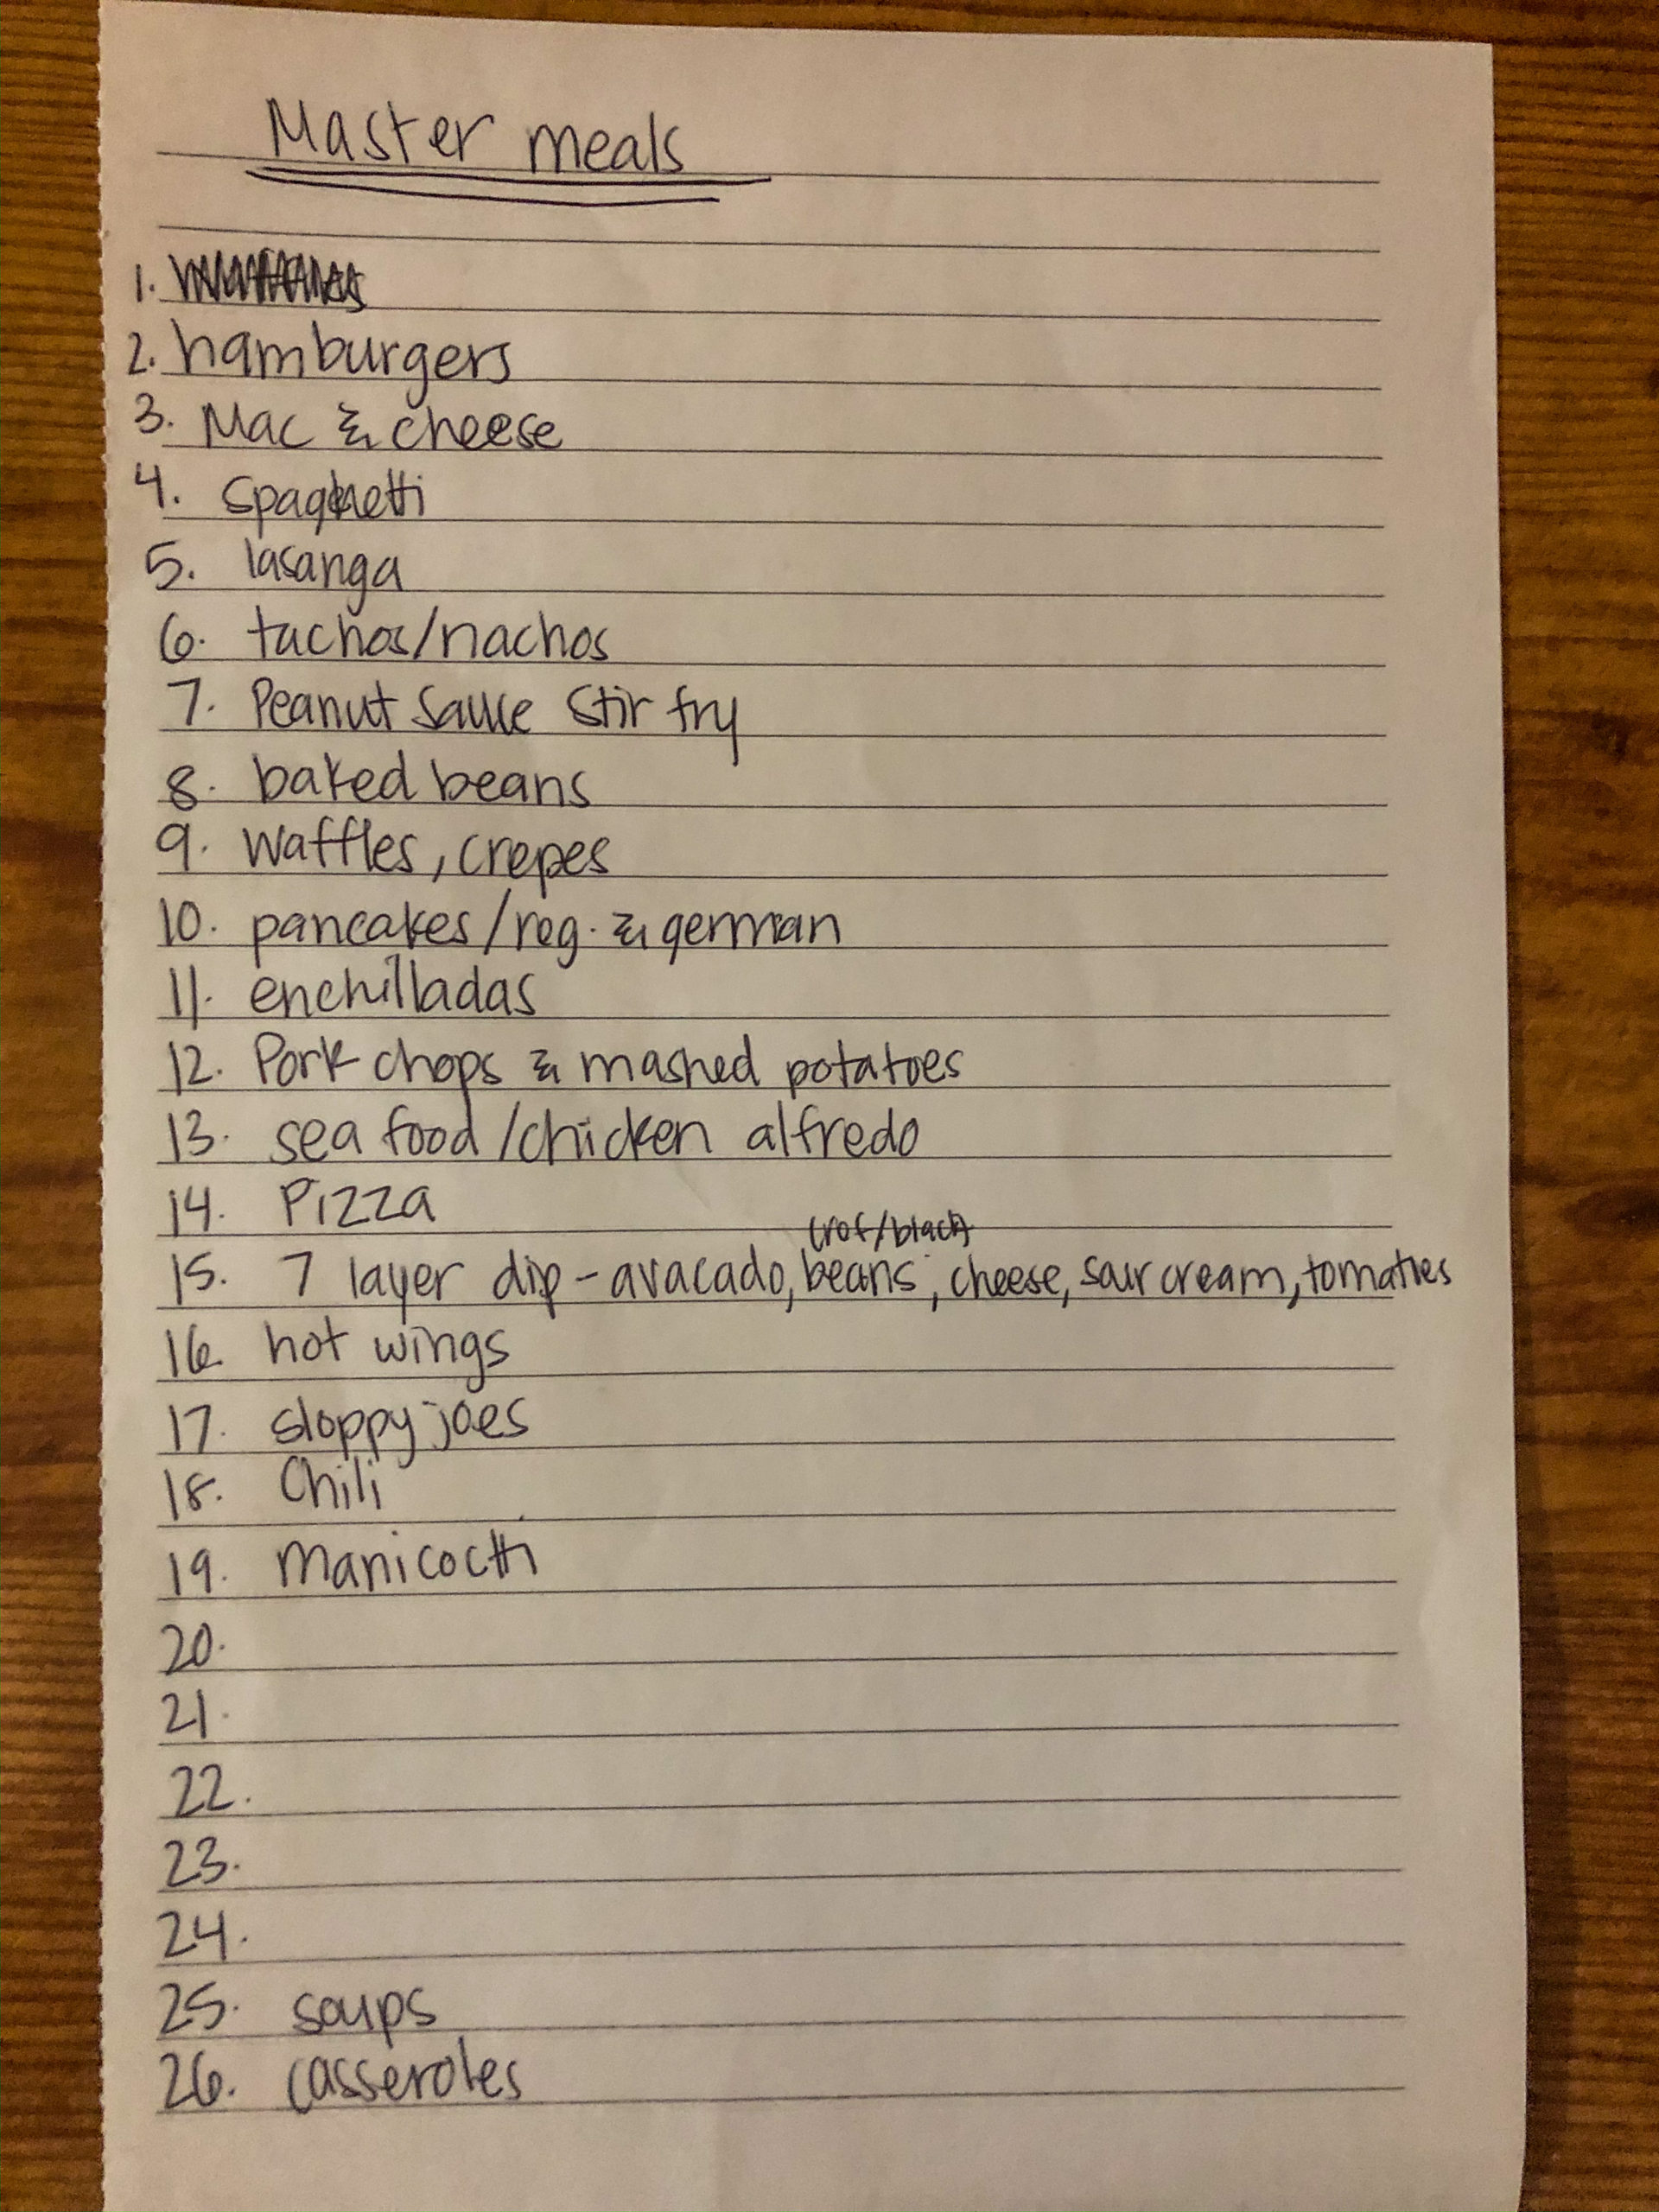 Master meals
1.
2. hamburgers
3. Mac & cheese
4. spaghetti
5. lasanga
6. tachos/nachos
7. Peanut sauce stir fry
8. baked beans
9. waffles, crepes
10. pancakes/reg. & german
11. enchilladas
12. Pork chops & mashed potatoes
13. sea food/chicken alfredo
14. Pizza
(ref/black)
15. 7 layer dip - avacado, beans, cheese, sour cream, tomatoes
16. hot wings
17. sloppy joes
18. Chili
19. Manicotti
20.
21.
22.
23.
24.
25. soups
26. casseroles